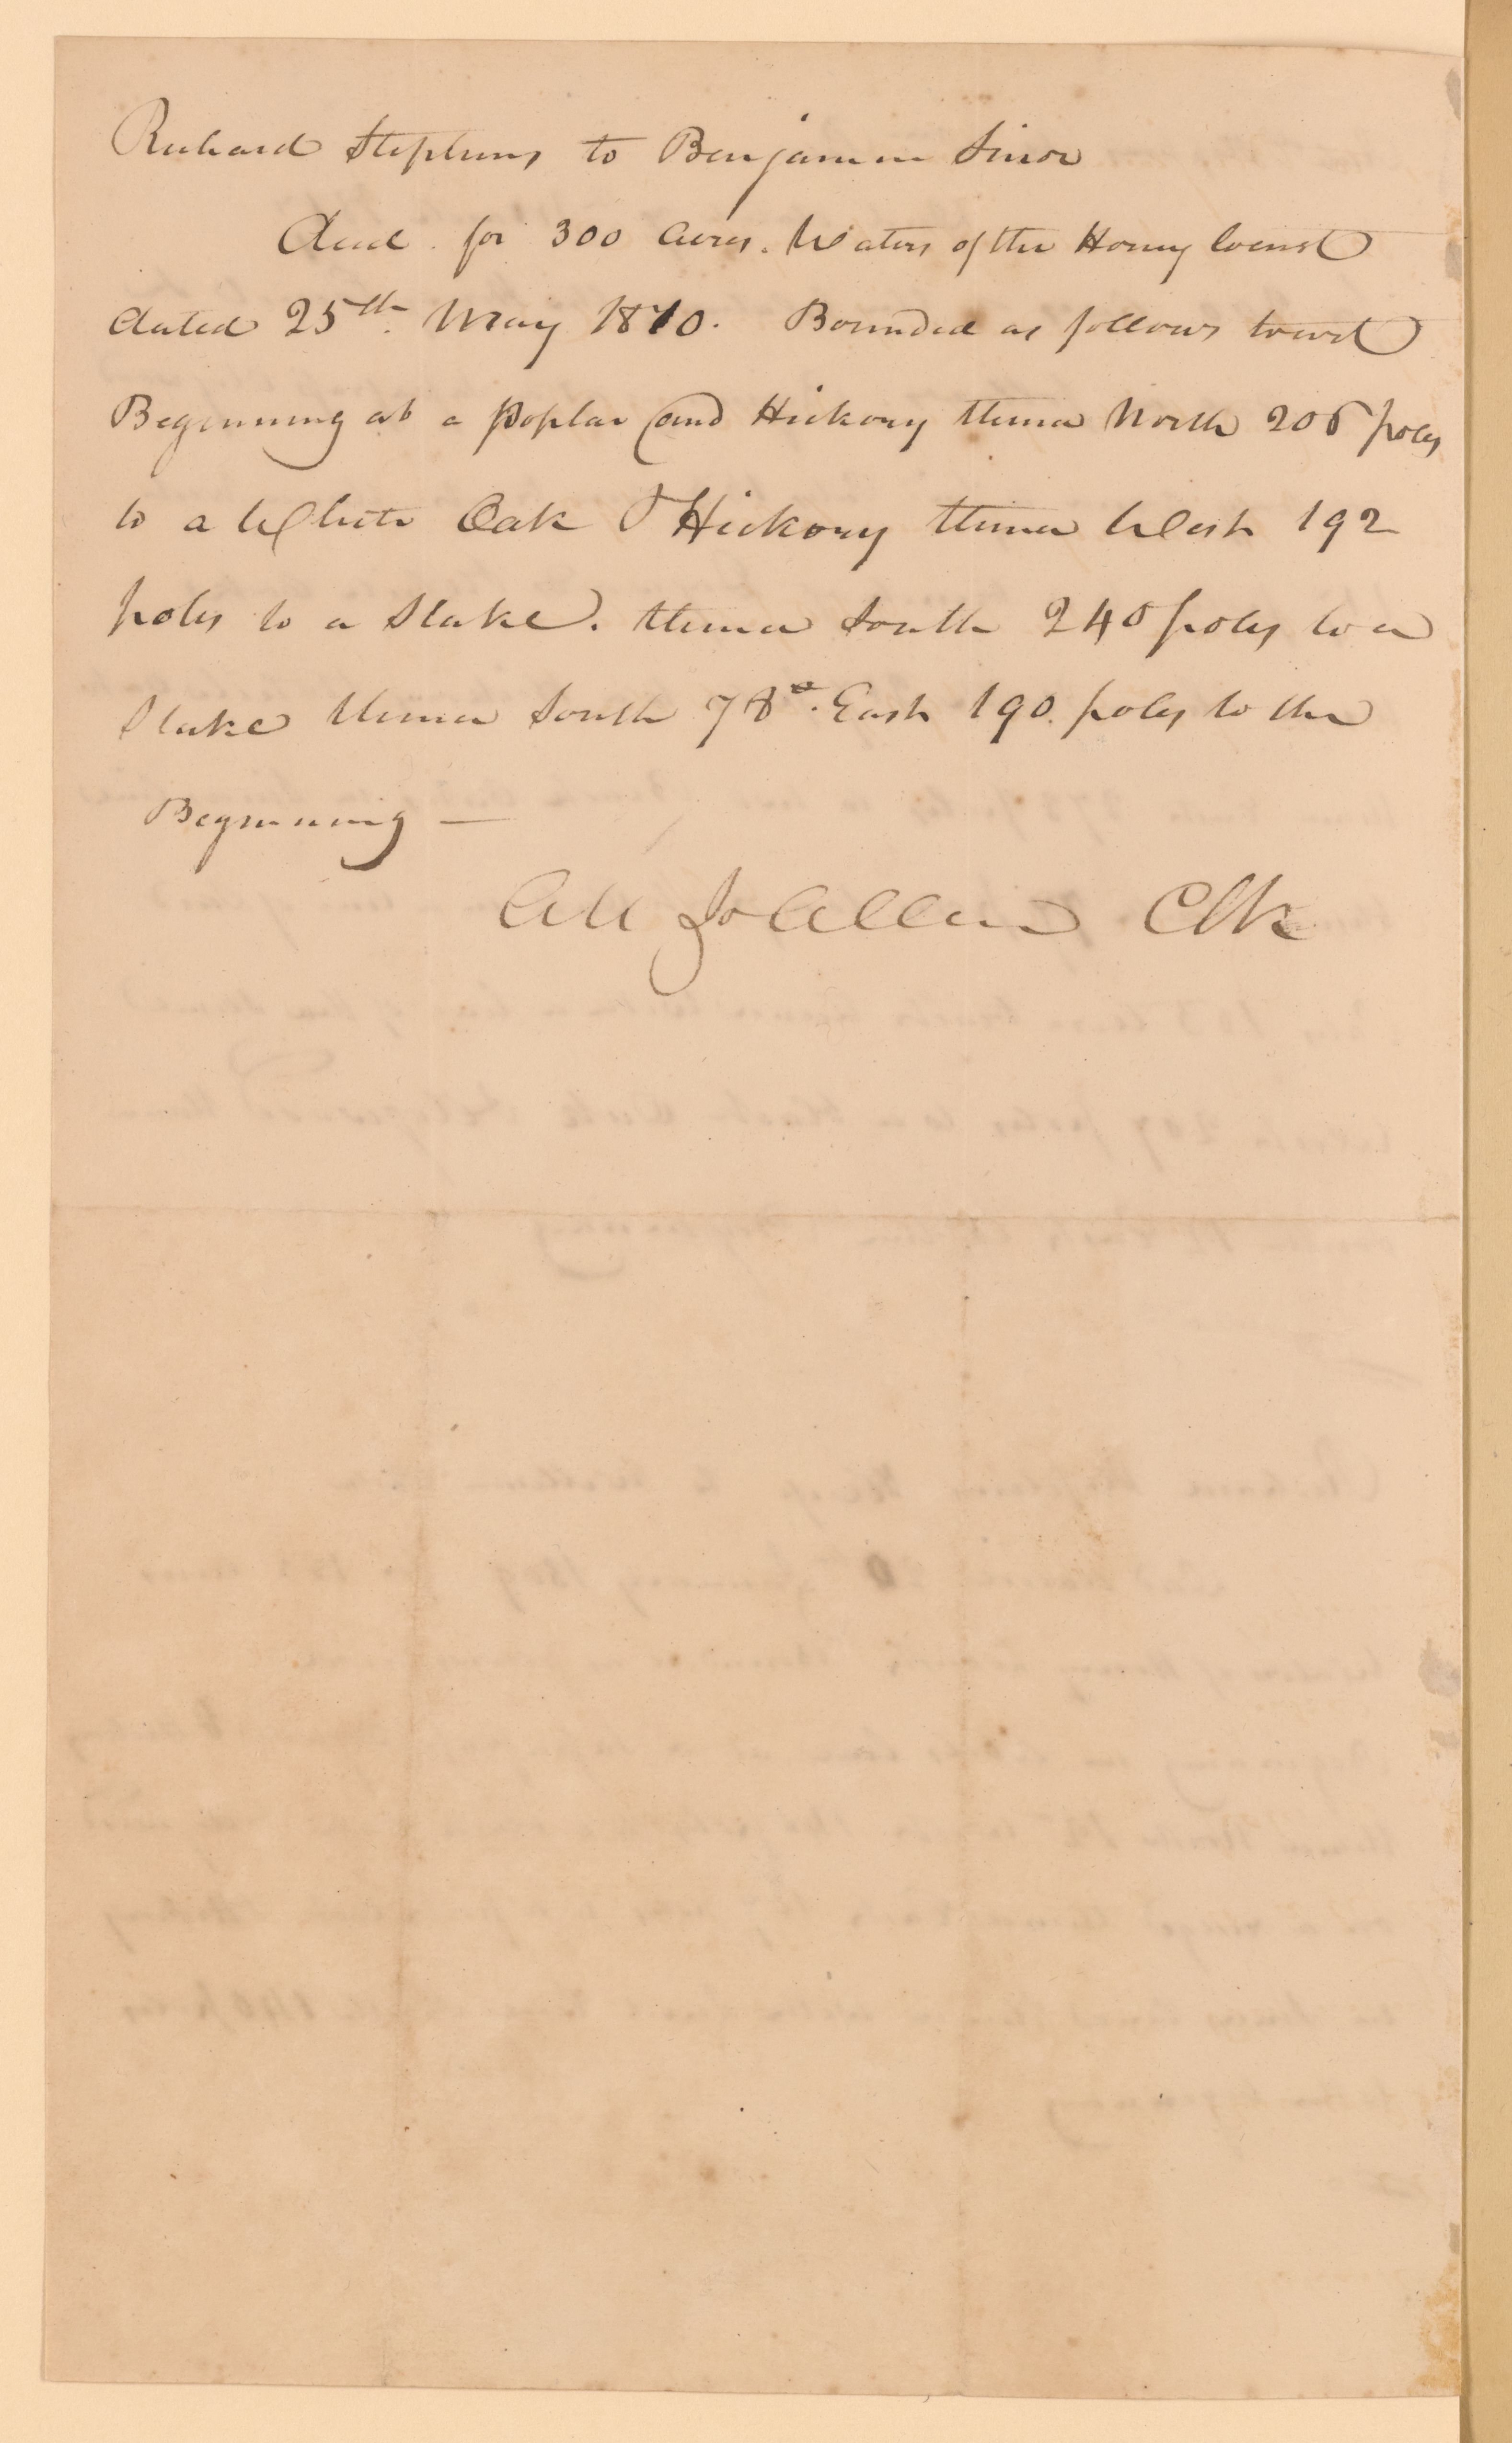 Richard Stephens to Benjamin Sinor
Deed for 300 acres. Waters of the Honey locust
dated 25th May 1810. Bounded as follows towit
Beginning at a Poplar and Hickory thence North 206 poles
to a White Oak & Hickory thence West 192
poles to a Stake. thence South 240 poles to a
Stake thence South 78°. East 190. poles to the
Beginning —
Att Jo Allen Clk